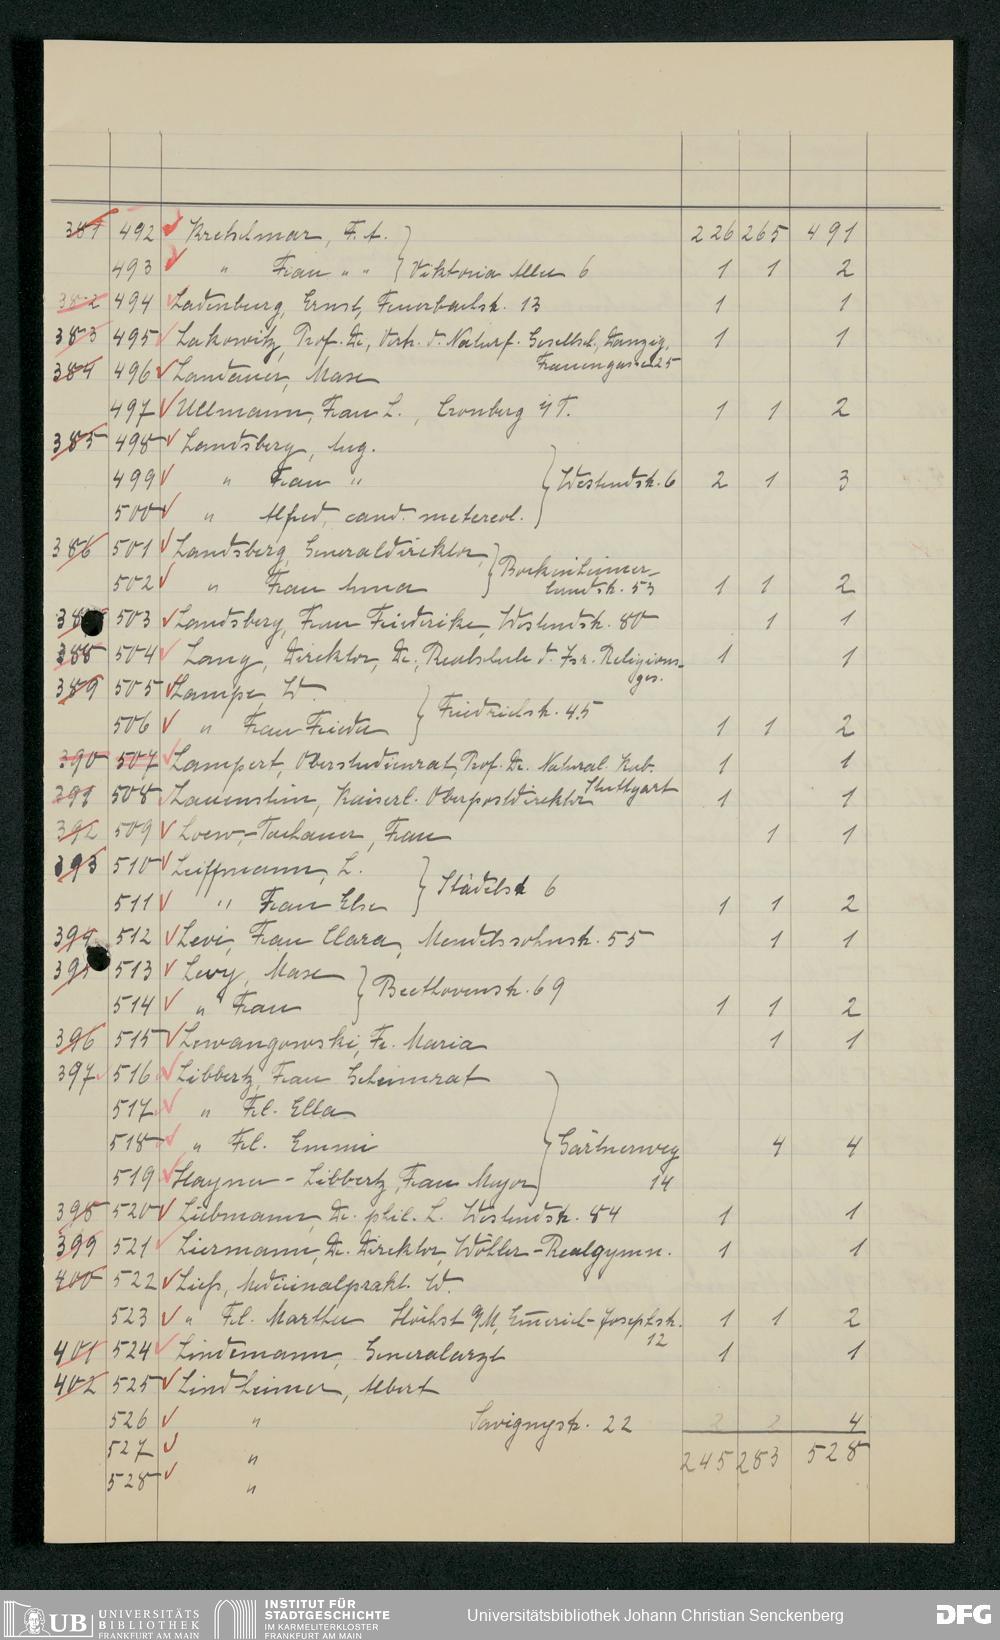 381 492 Kretzelmar, F. A. 226 265 491
493 " Frau " " Viktoria Allee 6 1 1 2
382 494 Ladenburg, Ernst, Feuerbachstr. 13 1 1
383 495 Lakowitz, Prof. Dr., Vertr. d. Naturf. Gesellsch. Danzig, 1 1
Frauengasse 25
384 496 Landauer, Max
497 Ullmann, Frau L., Cronberg i/T. 1 1 2
385 498 Landsberg, Aug.
499 " Frau " Westendstr. 6 2 1 3
500 " Alfred, cand. metereol.
386 501 Landsberg, Generaldirektor,
502 " Frau Anna Bockenheimer-
landstr. 53 1 1 2
503 Landsberg, Frau Friederike, Westendstr. 80 1 1
388 504 Lang, Direktor, Dr., Realschule d. Isr. Religions- 1 1
ges.
389 505 Lampe, W.
506 " Frau Frieda Friedrichstr. 45 1 1 2
390 507 Lampert, Oberstudienrat, Prof. Dr. Natural. Kab. 1 1
Stuttgart
391 508 Lauenstein, Kaiserl. Oberpostdirektor 1 1
392 509 Loew-Tachauer, Frau 1 1
393 510 Leiffmann, L.
511 " Frau Else Städelstr 6 1 1 2
394 512 Levi, Frau Clara, Mendelssohnstr. 55 1 1
395 513 Levy, Max
514 " Frau Beethovenstr. 69 1 1 2
396 515 Lewangowski, Fr. Maria 1 1
397 516 Libbertz, Frau Geheimrat
517 " Frl. Ella
518 " Frl. Emmi Gärtnerweg 4 4
519 Hayner-Libbertz, Frau Major 14
398 520 Liebmann, Dr. phil. L. Westendstr. 84 1 1
399 521 Liermann, Dr. Direktor, Wöhler-Realgymn. 1 1
400 522 Liefs, Medicinalprakt. W.
523 " Frl. Martha Höchst a/M, Emerich-Josephstr. 1 1 2
12
401 524 Lindemann, Generalarzt 1 1
402 525 Lindheimer, Albert
526 " Savignystr. 22 2 2 4
527 " 245 283 528
528 "
UB UNIVERSITÄTS
BIBLIOTHEK
FRANKFURT AM MAIN
INSTITUT FÜR
STADTGESCHICHTE
IM KARMELITERKLOSTER
FRANKFURT AM MAIN
Universitätsbibliothek Johann Christian Senckenberg
DFG